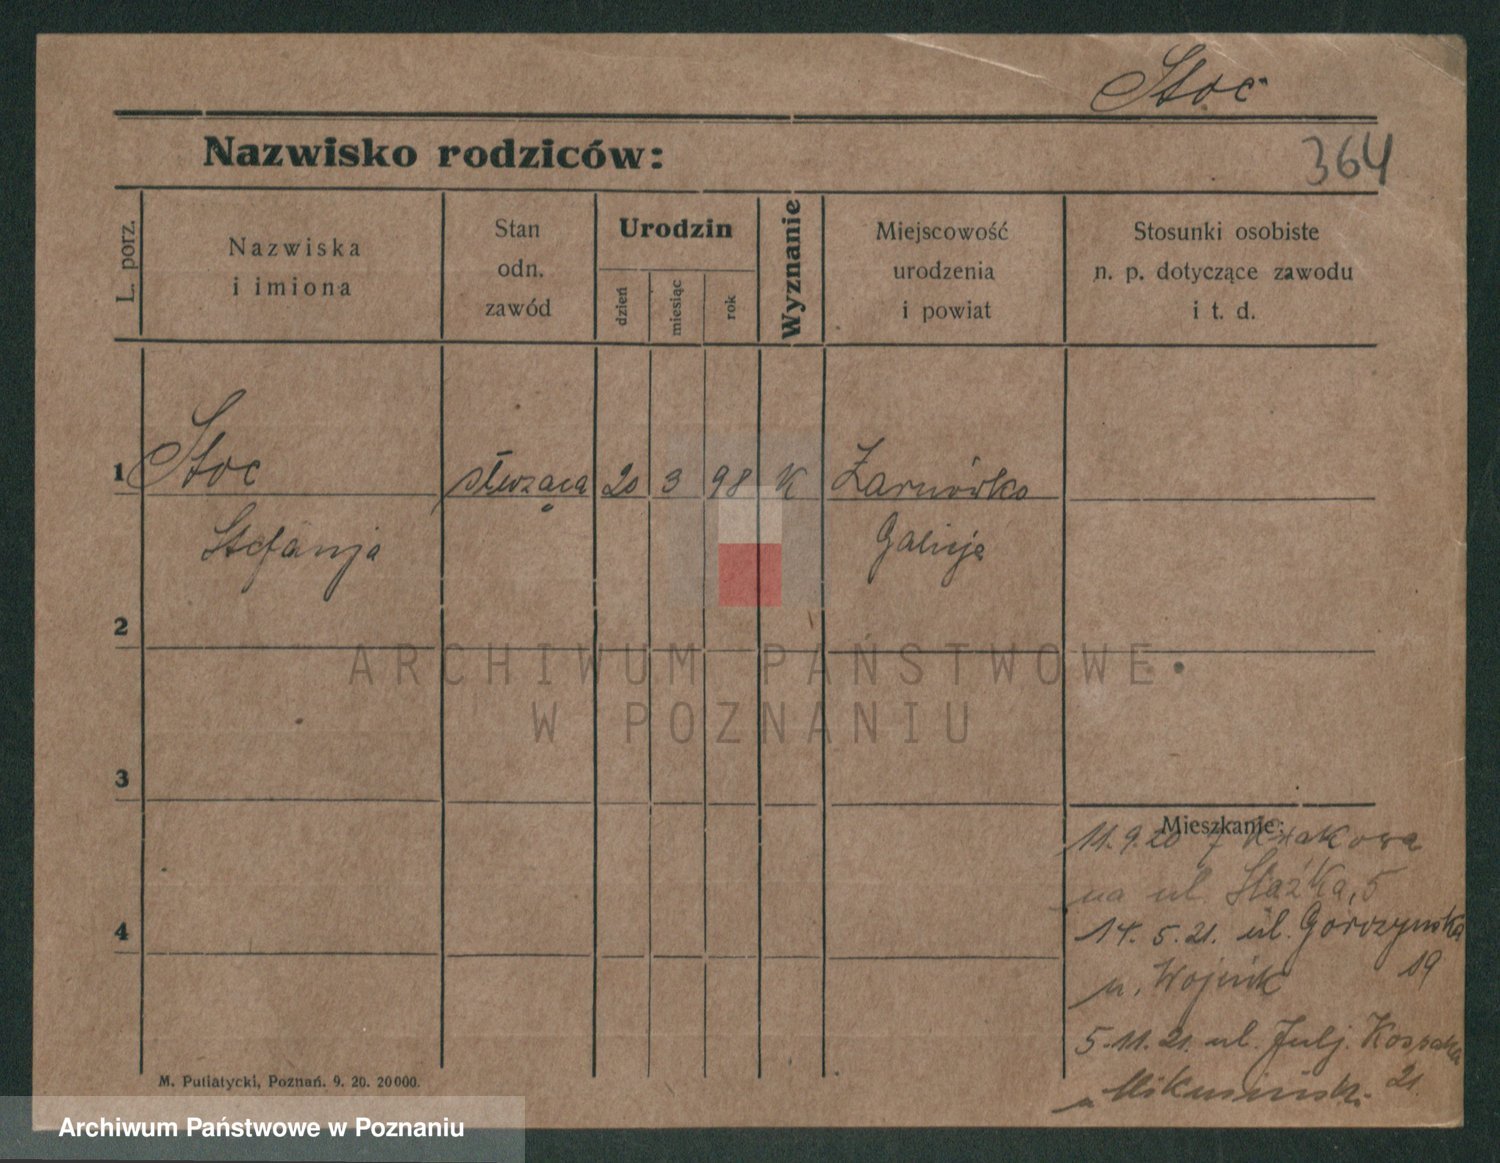 Stoc
364
Nazwisko rodziców:
L. porz.
Nazwiska
i imiona
Stan
odn.
zawód
Urodzin
dzień
miesiąc
rok
Wyznanie
Miejscowość
urodzenia
i powiat
Stosunki osobiste
n. p. dotyczące zawodu
i t. d.
1 Stoc służąca 20 3 98 K Żarnówka
Stefanja Galicja
2
ARCHIWUM PAŃSTWOWE
W POZNANIU
3
Mieszkanie:
11.9.20 z Krakowa
na ul. 5
4
14. 5. 21. ul. Górczyńska
19
u. Wojcik
5.11.21. ul. Julj. Kossaka
21
u
M. Putiatycki, Poznań. 9. 20. 20000.
Archiwum Państwowe w Poznaniu